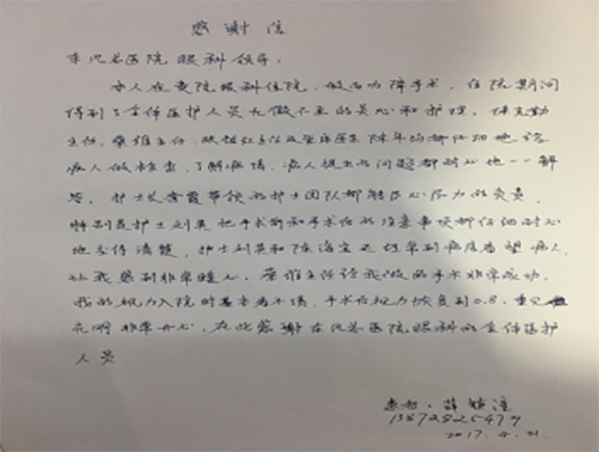 感谢信
医院眼科领导:
本人在贵院眼科住院,做白内障手术,住院期间
得到了全体医护人员无微不至的关心和护理。
主任,主任,主任及管床医生陈年均都仔细地给
病人做检查,了解病情,病人提出的问题都耐心地一一解
答。护士长带领的护士团队都能尽心尽力的负责,
特别是护士刘英把手术前和手术后的注意事项都仔细耐心
地交待清楚,护士刘英和陈海宝还经常到病床看望病人,
让我感到非常暖心。主任给我做的手术非常成功,
我的视力入院时基本看不清,手术后视力恢复到0.8,重见
光明非常开心,在此感谢医院眼科的全体医护
人员
患者:薛
2017.4.21